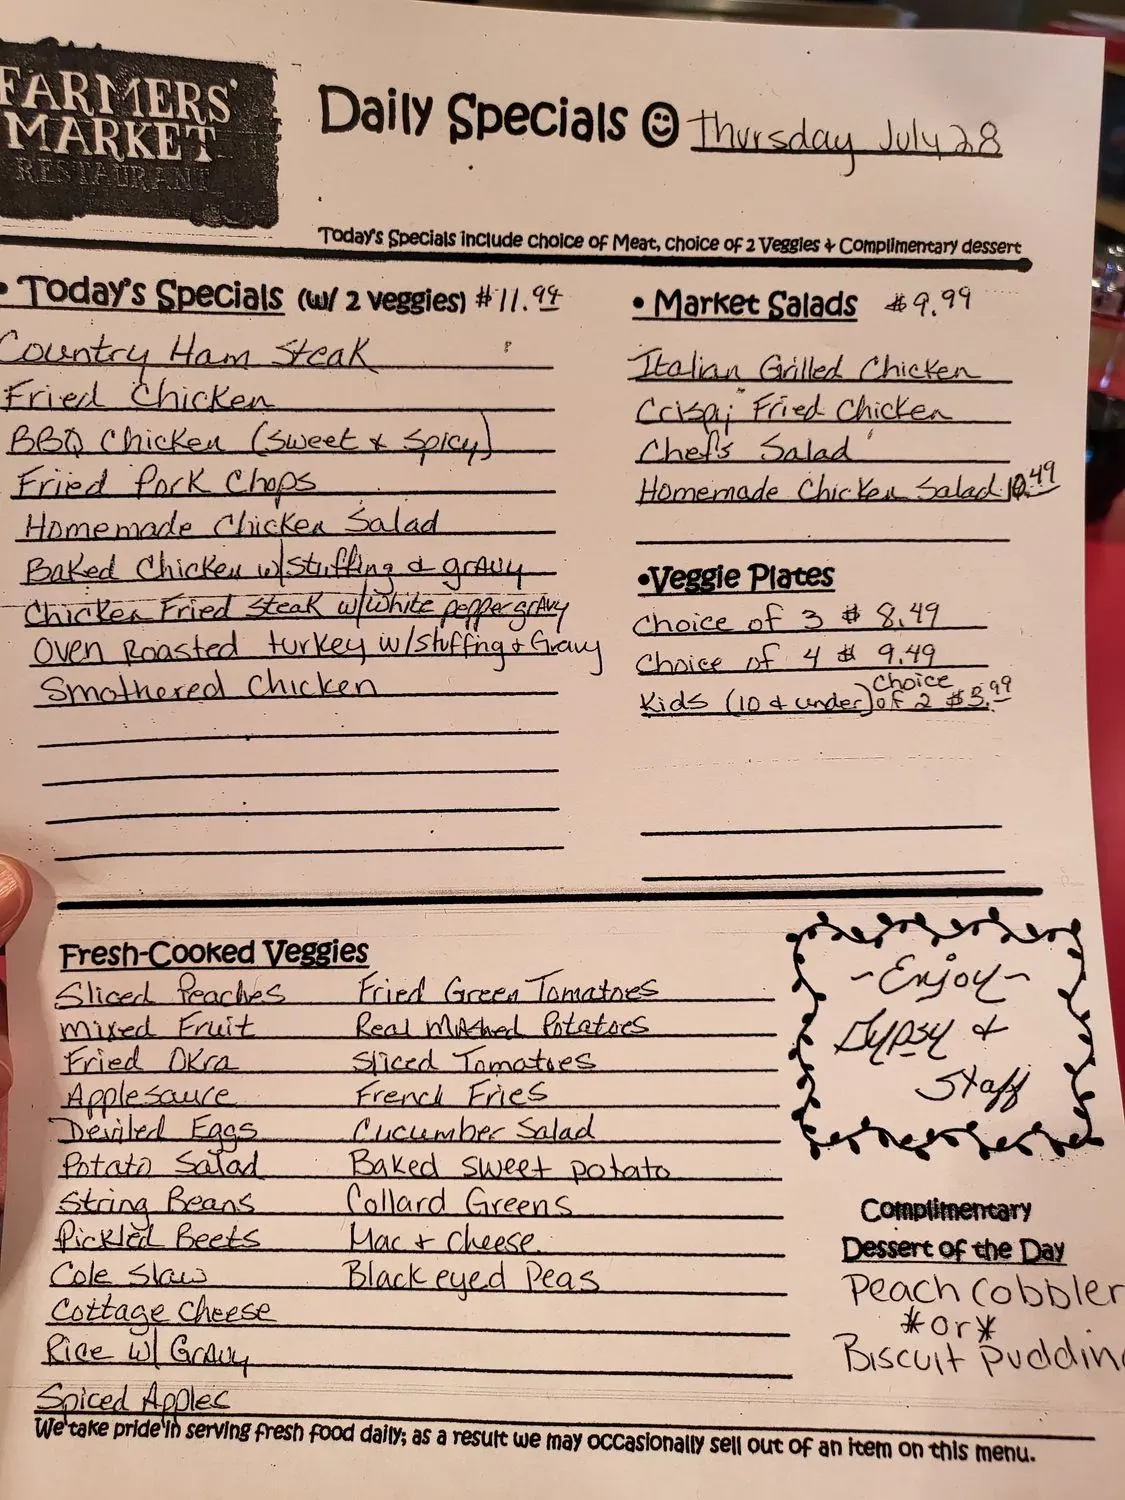 FARMERS'
MARKET
RESTAURANT
Daily Specials Thursday July 28
Today's Specials include choice of Meat, choice of 2 Veggies & Complimentary dessert
• Today's Specials (w/ 2 veggies) $11.99
Country Ham Steak
Fried Chicken
BBQ Chicken (Sweet & Spicy)
Fried Pork Chops
Homemade Chicken Salad
Baked Chicken w/stuffing & gravy
Chicken Fried Steak w/white pepper gravy
Oven Roasted turkey w/stuffing & Gravy
Smothered Chicken
• Market Salads $9.99
Italian Grilled Chicken
Crispy Fried Chicken
Chef's Salad
Homemade Chicken Salad 10.49
•Veggie Plates
Choice of 3 $ 8.49
Choice of 4 $ 9.49
Kids (10 & under) Choice of 2 $
Fresh-Cooked Veggies
Sliced Peaches Fried Green Tomatoes
Mixed Fruit Real Mashed Potatoes
Fried Okra Sliced Tomatoes
Applesauce French Fries
Deviled Eggs Cucumber Salad
Potato Salad Baked sweet potato
String Beans Collard Greens
Pickled Beets Mac & cheese
Cole Slaw Black eyed Peas
Cottage cheese
Rice w/ Gravy
Spiced Apples
~Enjoy~
Gypsy &
Staff
Complimentary
Dessert of the Day
Peach Cobbler
*or*
Biscuit Puddin
We take pride in serving fresh food daily; as a result we may occasionally sell out of an item on this menu.